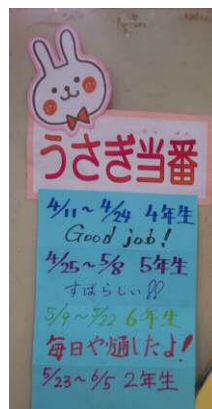 うさぎ当番
4/11～4/24 4年生
Good job!
4/25～5/8 5年生
すばらしい!!
5/9～5/22 6年生
5/23～6/5 2年生